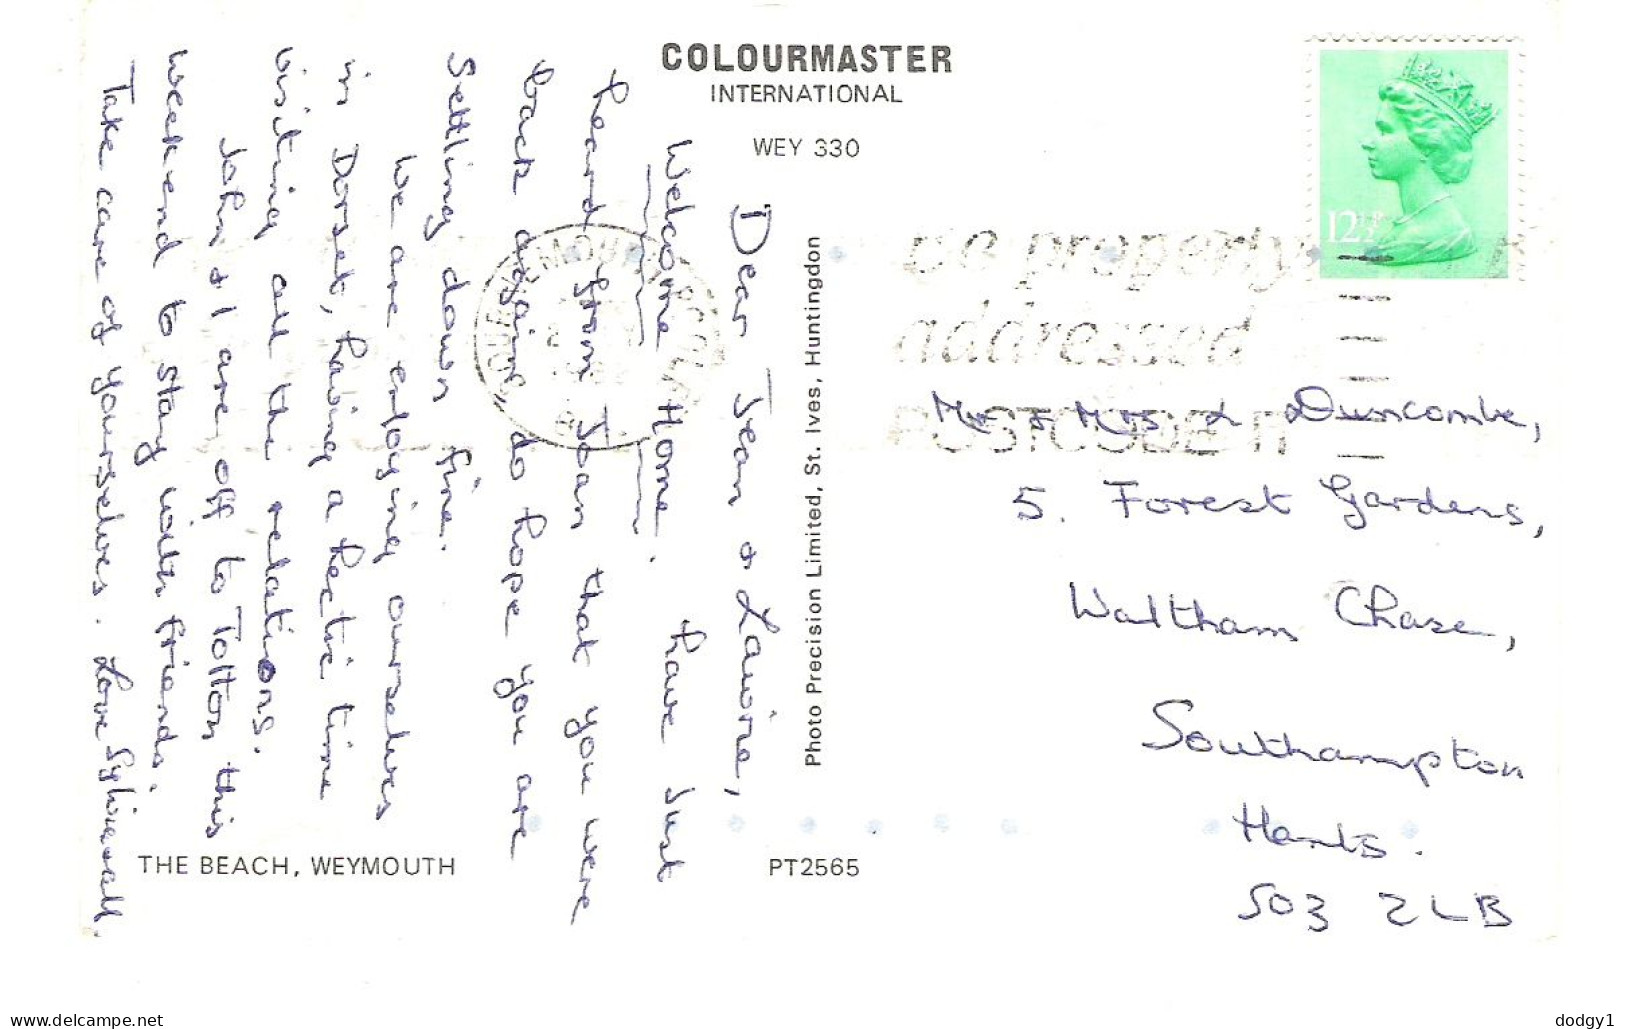 COLOURMASTER
INTERNATIONAL
WEY 330
Dear Jean & Lawrie,
Welcome Home. Have just
heard from Joan that you were
back again, do hope you are
settling down fine.
We are enjoying ourselves
in Dorset, having a hectic time
visiting all the relations.
John & I are off to Totton this
weekend to stay with friends.
Take care of yourselves. Love Sylvia & all.
Photo Precision Limited, St. Ives, Huntingdon
12½P
be properly
addressed
POSTCODE IT
BOURNEMOUTH POOLE
Mr & Mrs L Duncombe,
5. Forest Gardens,
Waltham Chase,
Southampton
Hants.
SO3 2LB
THE BEACH, WEYMOUTH
PT2565
www.delcampe.net
dodgy1